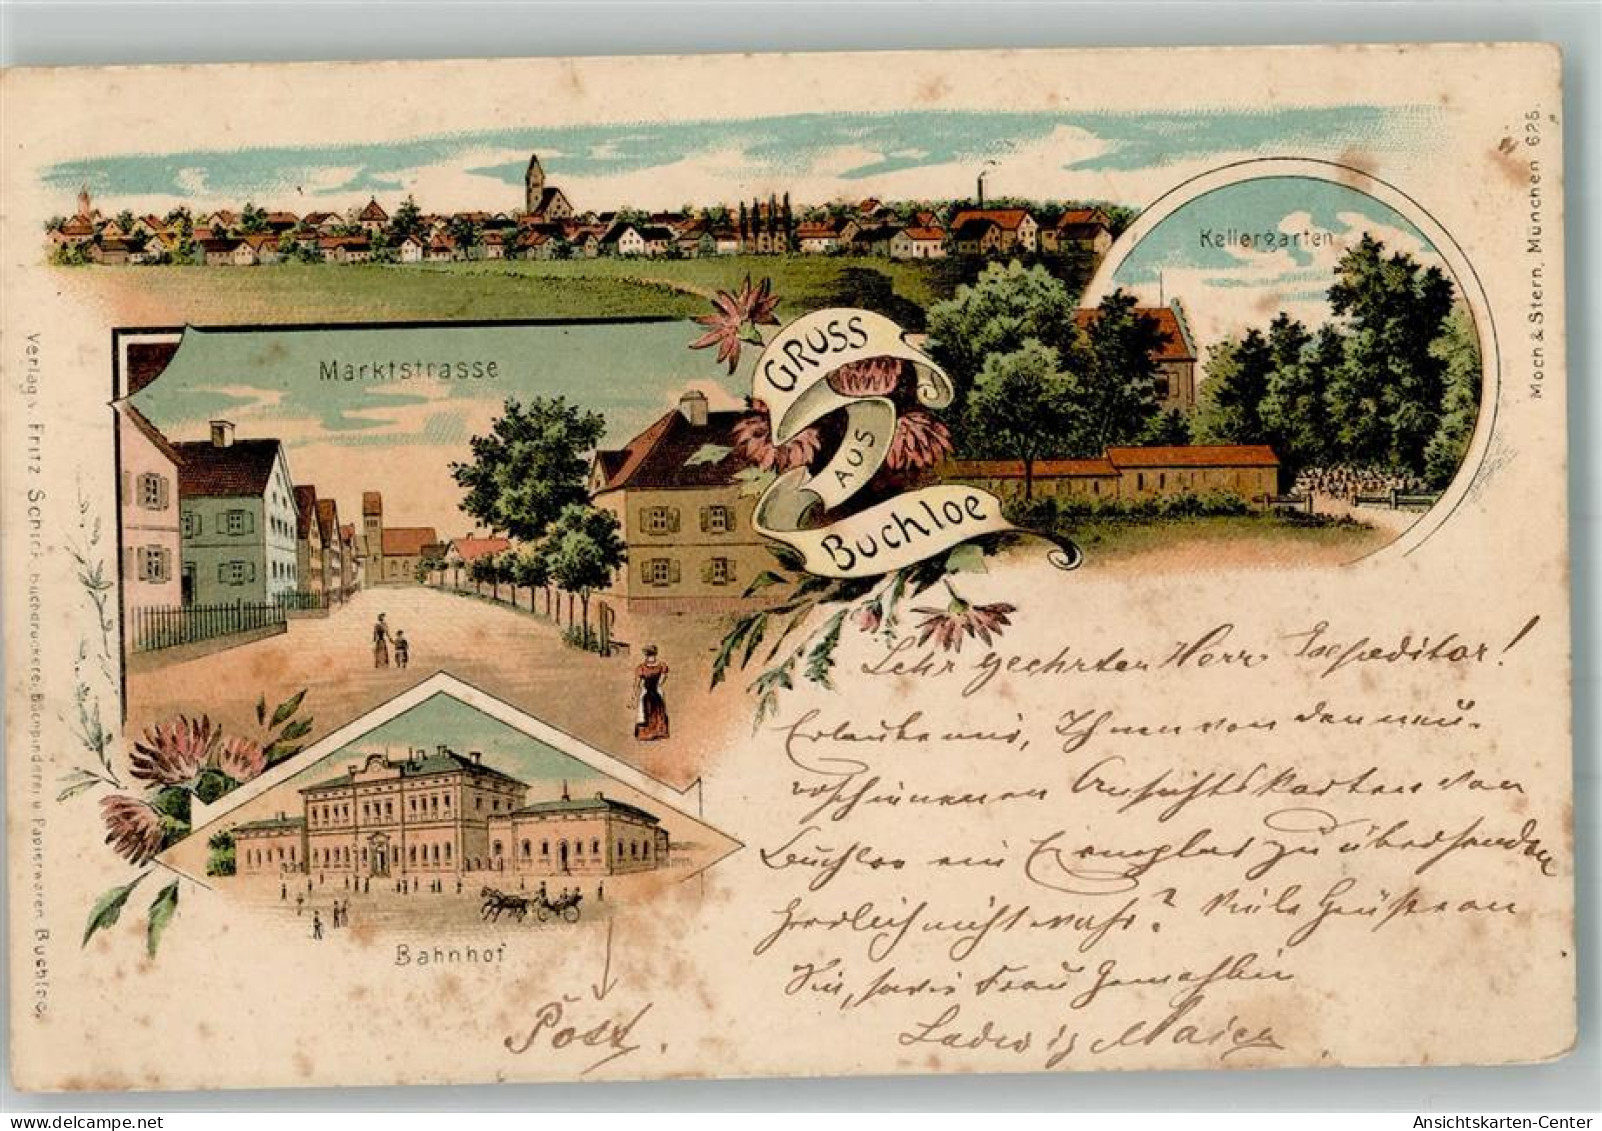 Kellergarten
Marktstrasse
GRUSS
AUS
Buchloe
Bahnhof
Moch & Stern, München 626.
Verlag v. Fritz Schier, Buchdruckerei, Buchbinderei u Papierwaren Buchloe.
Sehr geehrter Herr Expeditor!
Erlaube mir, Ihnen von den neu-
erschienenen Ansichtskarten von
Buchloe ein Exemplar zu übersenden
Herrlich nicht wahr? Viele Grüße an
Sie, sowie Frau Gemahlin
Ludwig
Post.
Ansichtskarten-Center